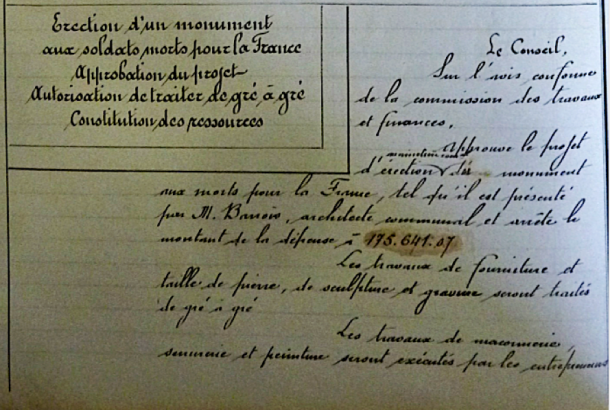 Erection d'un monument
aux soldats morts pour la France
Approbation du projet
Autorisation de traiter de gré à gré
Constitution des ressources
Le Conseil,
Sur l'avis conforme
de la commission des travaux
et finances,
Approuve le projet
d'érection du monument
aux morts pour la France, tel qu'il est présenté
par M. Barrois, architecte communal et arrête le
montant de la dépense à 175.641.07
Les travaux de fourniture et
taille de pierre, de sculpture et gravure seront traités
de gré à gré
Les travaux de maçonnerie,
serrurerie et peinture seront exécutés par les entrepreneurs